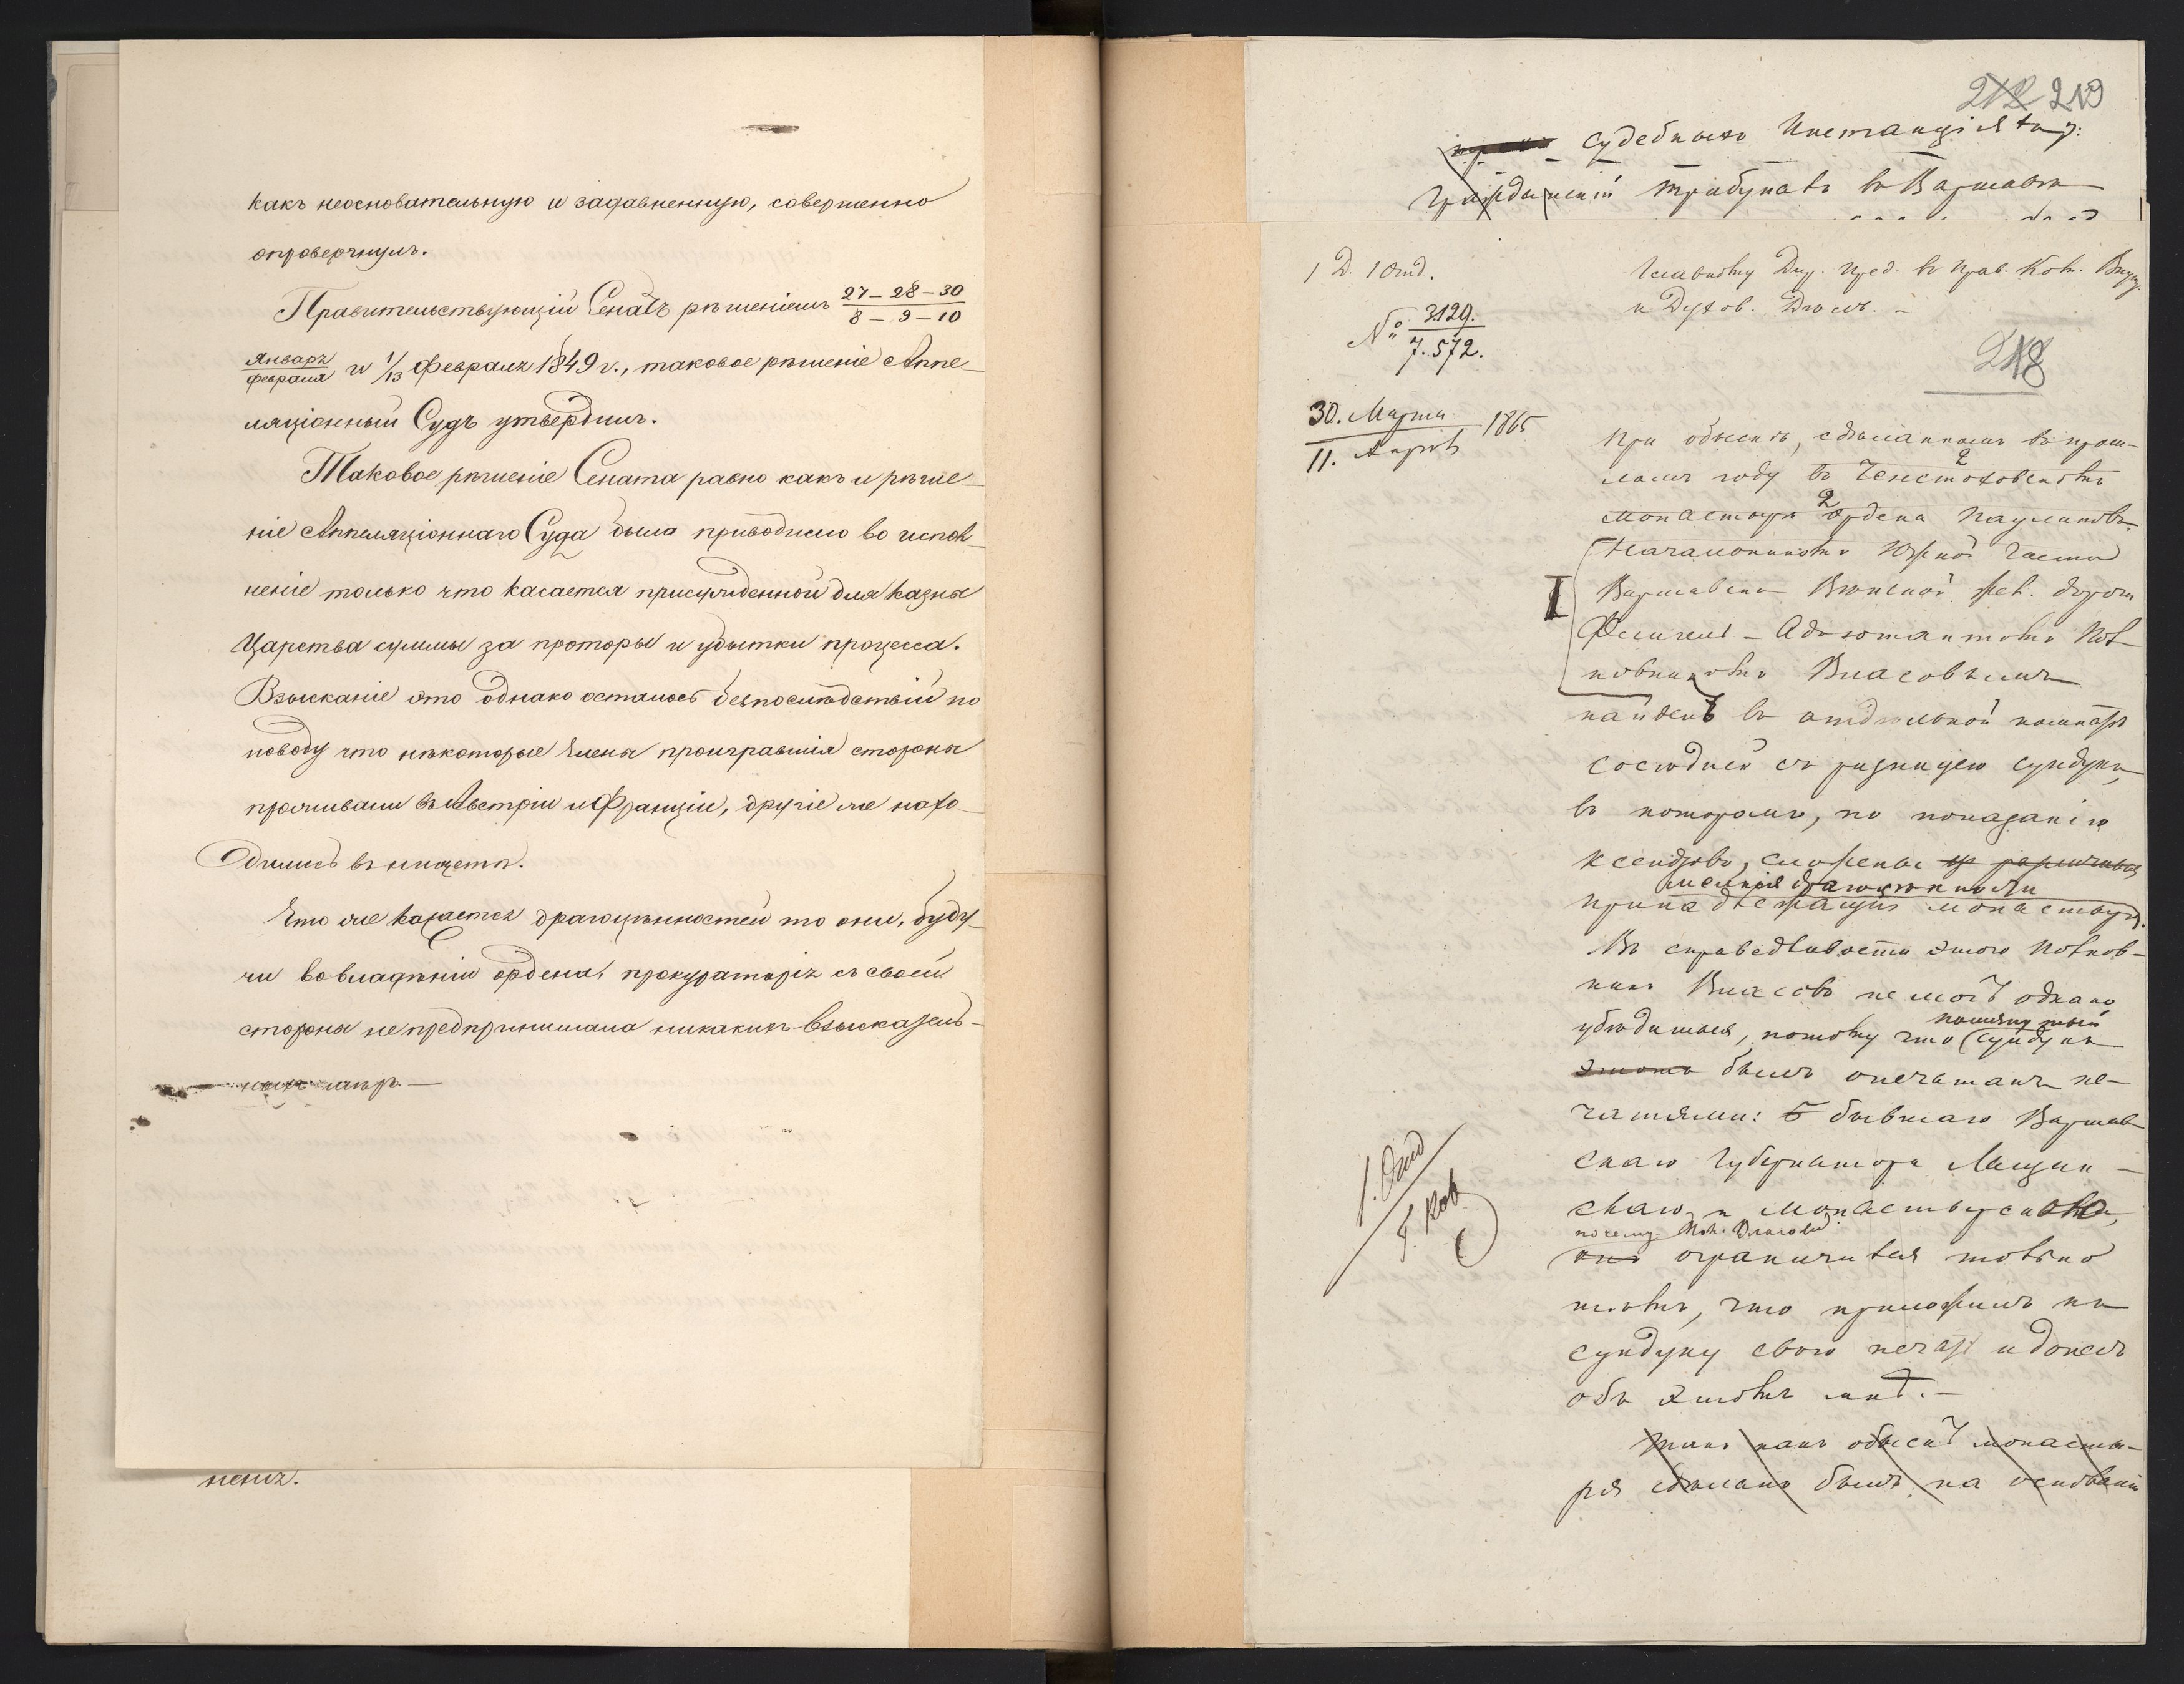 какъ неосновательную и задавненную, совершенно
опровергнулъ.
Правительствующій Сенатъ рѣшеніемъ 27–28–30 / 8–9–10
Января / Февраля и 1/13 Февраля 1849 г., таковое рѣшеніе Аппе-
ляціонный Судъ утвердилъ.
Таковое рѣшеніе Сената равно какъ и рѣше-
ніе Аппеляціоннаго Суда было приводимо во испол-
неніе только что касается присужденной для казны
Царства суммы за проторы и убытки процесса.
Взысканіе это однако осталось безпослѣдствій по
поводу что нѣкоторые члены проигравшія стороны
проживали въ Австріи и Франціи, другіе же нахо-
дились въ нищетѣ.
Что же касается драгоцѣнностей то они, буду-
чи во владѣніи ордена, прокураторія съ своей
стороны не предпринимала никакихъ взыскатель-
ныхъ мѣръ. —
ненія.
212 219
судебныхъ Инстанціяхъ:
Гражданскій Трибуналъ въ Варшавѣ
1 Д. 1 Отд.
№ 3129. / 7.572.
30. Марта / 11. Апрѣл 1865
Главному Дир. Пред. въ Прав. Ком. Внутр.
и Духов. Дѣлъ. –
218
При обыскѣ, сдѣланномъ въ прош-
ломъ году въ Ченстоховскомъ
монастырѣ Ордена Паулиновъ.
Начальникомъ Южной части
I Варшавско Вѣнской жел. дороги
Флигель-Адъютантомъ Пол-
ковникомъ Власовымъ
найденъ въ отдѣльной комнатѣ
сосѣдней съ ризницею сундукъ,
въ которомъ, по показанію
ксендзовъ, сложены
мелкія драгоцѣнности
принадлежащія монастырю.
Въ справедливости этого Полков-
никъ Власовъ не могъ однако
помянутый
убѣдиться, потому что сундукъ
этотъ былъ опечатанъ пе-
чатями: бывшаго Варшав-
скаго Губернатора Лащин-
скаго и монастырскою,
почему Полк. Власовъ
онъ ограничился только
тѣмъ, что приложилъ къ
сундуку свою печать и донесъ
объ этомъ мнѣ. –
Такъ какъ обыскъ монасты-
ря сдѣланъ былъ на основаніи
1. Отд